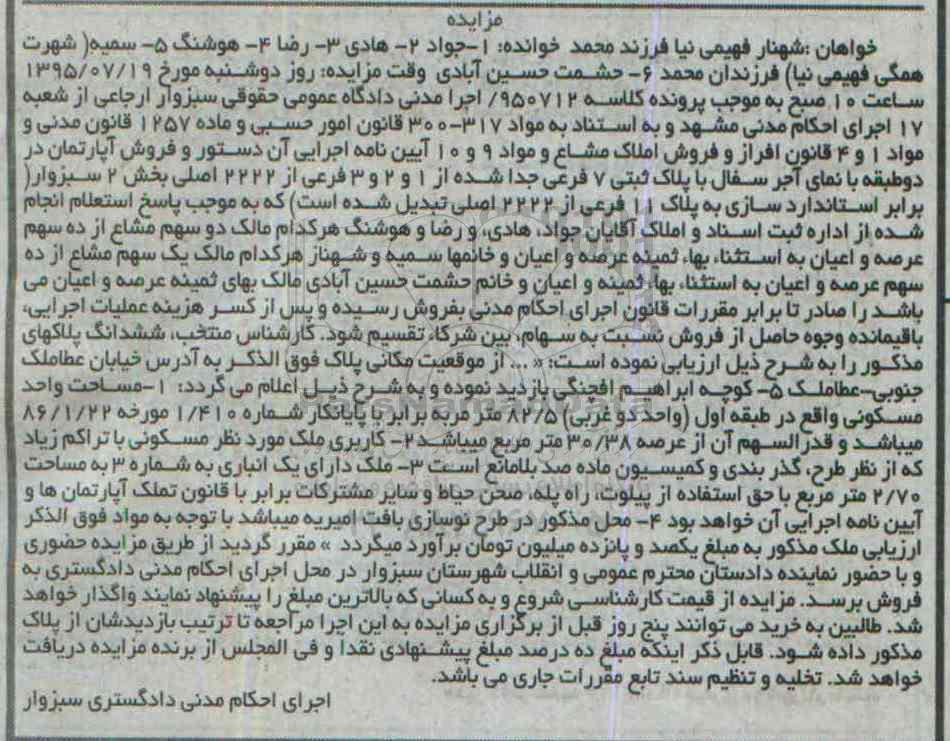 مزایده
خواهان :شهنار فهیمی نیا فرزند محمد خوانده: ۱-جواد ۲- هادی ۳- رضا ۴- هوشنگ ۵- سمیه( شهرت
همگی فهیمی نیا) فرزندان محمد ۶- حشمت حسین آبادی وقت مزایده: روز دوشنبه مورخ ۱۳۹۵/۰۷/۱۹
ساعت ۱۰ صبح به موجب پرونده کلاسه ۹۵۰۷۱۲/ اجرا مدنی دادگاه عمومی حقوقی سبزوار ارجاعی از شعبه
۱۷ اجرای احکام مدنی مشهد و به استناد به مواد ۳۱۷-۳۰۰ قانون امور حسبی و ماده ۱۲۵۷ قانون مدنی و
مواد ۱ و ۴ قانون افراز و فروش املاک مشاع و مواد ۹ و ۱۰ آیین نامه اجرایی آن دستور و فروش آپارتمان در
دوطبقه با نمای آجر سفال با پلاک ثبتی ۷ فرعی جدا شده از ۱ و ۲ و ۳ فرعی از ۲۲۲۲ اصلی بخش ۲ سبزوار(
برابر استاندارد سازی به پلاک ۱۱ فرعی از ۲۲۲۲ اصلی تبدیل شده است) که به موجب پاسخ استعلام انجام
شده از اداره ثبت اسناد و املاک آقایان جواد، هادی، و رضا و هوشنگ هرکدام مالک دو سهم مشاع از ده سهم
عرصه و اعیان به استثناء بهاء ثمینه عرصه و اعیان و خانمها سمیه و شهناز هرکدام مالک یک سهم مشاع از ده
سهم عرصه و اعیان به استثناء بهاء ثمینه و اعیان و خانم حشمت حسین آبادی مالک بهای ثمینه عرصه و اعیان می
باشد را صادر تا برابر مقررات قانون اجرای احکام مدنی بفروش رسیده و پس از کسر هزینه عملیات اجرایی،
باقیمانده وجوه حاصل از فروش نسبت به سهام، بین شرکاء تقسیم شود. کارشناس منتخب، ششدانگ پلاکهای
مذکور را به شرح ذیل ارزیابی نموده است: « ... از موقعیت مکانی پلاک فوق الذکر به آدرس خیابان عطاملک
جنوبی-عطاملک ۵- کوچه ابراهیم افچنگی بازدید نموده و به شرح ذیل اعلام می گردد: ۱-مساحت واحد
مسکونی واقع در طبقه اول (واحد دو غربی) ۸۲/۵ متر مربه برابر با پایانکار شماره ۱/۴۱۰ مورخه ۸۶/۱/۲۲
میباشد و قدرالسهم آن از عرصه ۳۰/۳۸ متر مربع میباشد ۲- کاربری ملک مورد نظر مسکونی با تراکم زیاد
که از نظر طرح، گذر بندی و کمیسیون ماده صد بلامانع است ۳- ملک دارای یک انباری به شماره ۳ به مساحت
۲/۷۰ متر مربع با حق استفاده از پیلوت، راه پله، صحن حیاط و سایر مشترکات برابر با قانون تملک آپارتمان ها و
آیین نامه اجرایی آن خواهد بود ۴- محل مذکور در طرح نوسازی بافت امیریه میباشد با توجه به مواد فوق الذکر
ارزیابی ملک مذکور به مبلغ یکصد و پانزده میلیون تومان برآورد میگردد » مقرر گردید از طریق مزایده حضوری
و با حضور نماینده دادستان محترم عمومی و انقلاب شهرستان سبزوار در محل اجرای احکام مدنی دادگستری به
فروش برسد. مزایده از قیمت کارشناسی شروع و به کسانی که بالاترین مبلغ را پیشنهاد نمایند واگذار خواهد
شد. طالبین به خرید می توانند پنج روز قبل از برگزاری مزایده به این اجرا مراجعه تا ترتیب بازدیدشان از پلاک
مذکور داده شود. قابل ذکر اینکه مبلغ ده درصد مبلغ پیشنهادی نقدا و فی المجلس از برنده مزایده دریافت
خواهد شد. تخلیه و تنظیم سند تابع مقررات جاری می باشد.
اجرای احکام مدنی دادگستری سبزوار